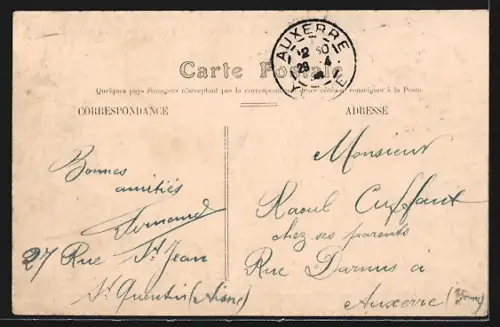 Carte Postale
Quelques pays étrangers n'acceptant pas la correspondance deux côtés, se renseigner à la Poste
CORRESPONDANCE
ADRESSE
AUXERRE
12 30
29 4
Bonnes
amitiés
Fernand
27 Rue St Jean
St Quentin (Aisne)
Monsieur
Raoul Cuffaut
chez ses parents
Rue Darnus à
Auxerre (Yonne)